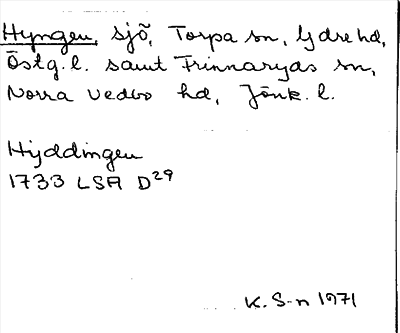 Hyngen, sjö, Torpa sn, Ydre hd,
Östg. l. samt Frinnaryds sn,
Norra Vedbo hd, Jönk. l.
Hyddingen
1733 LSA D29
K. S-n 1971